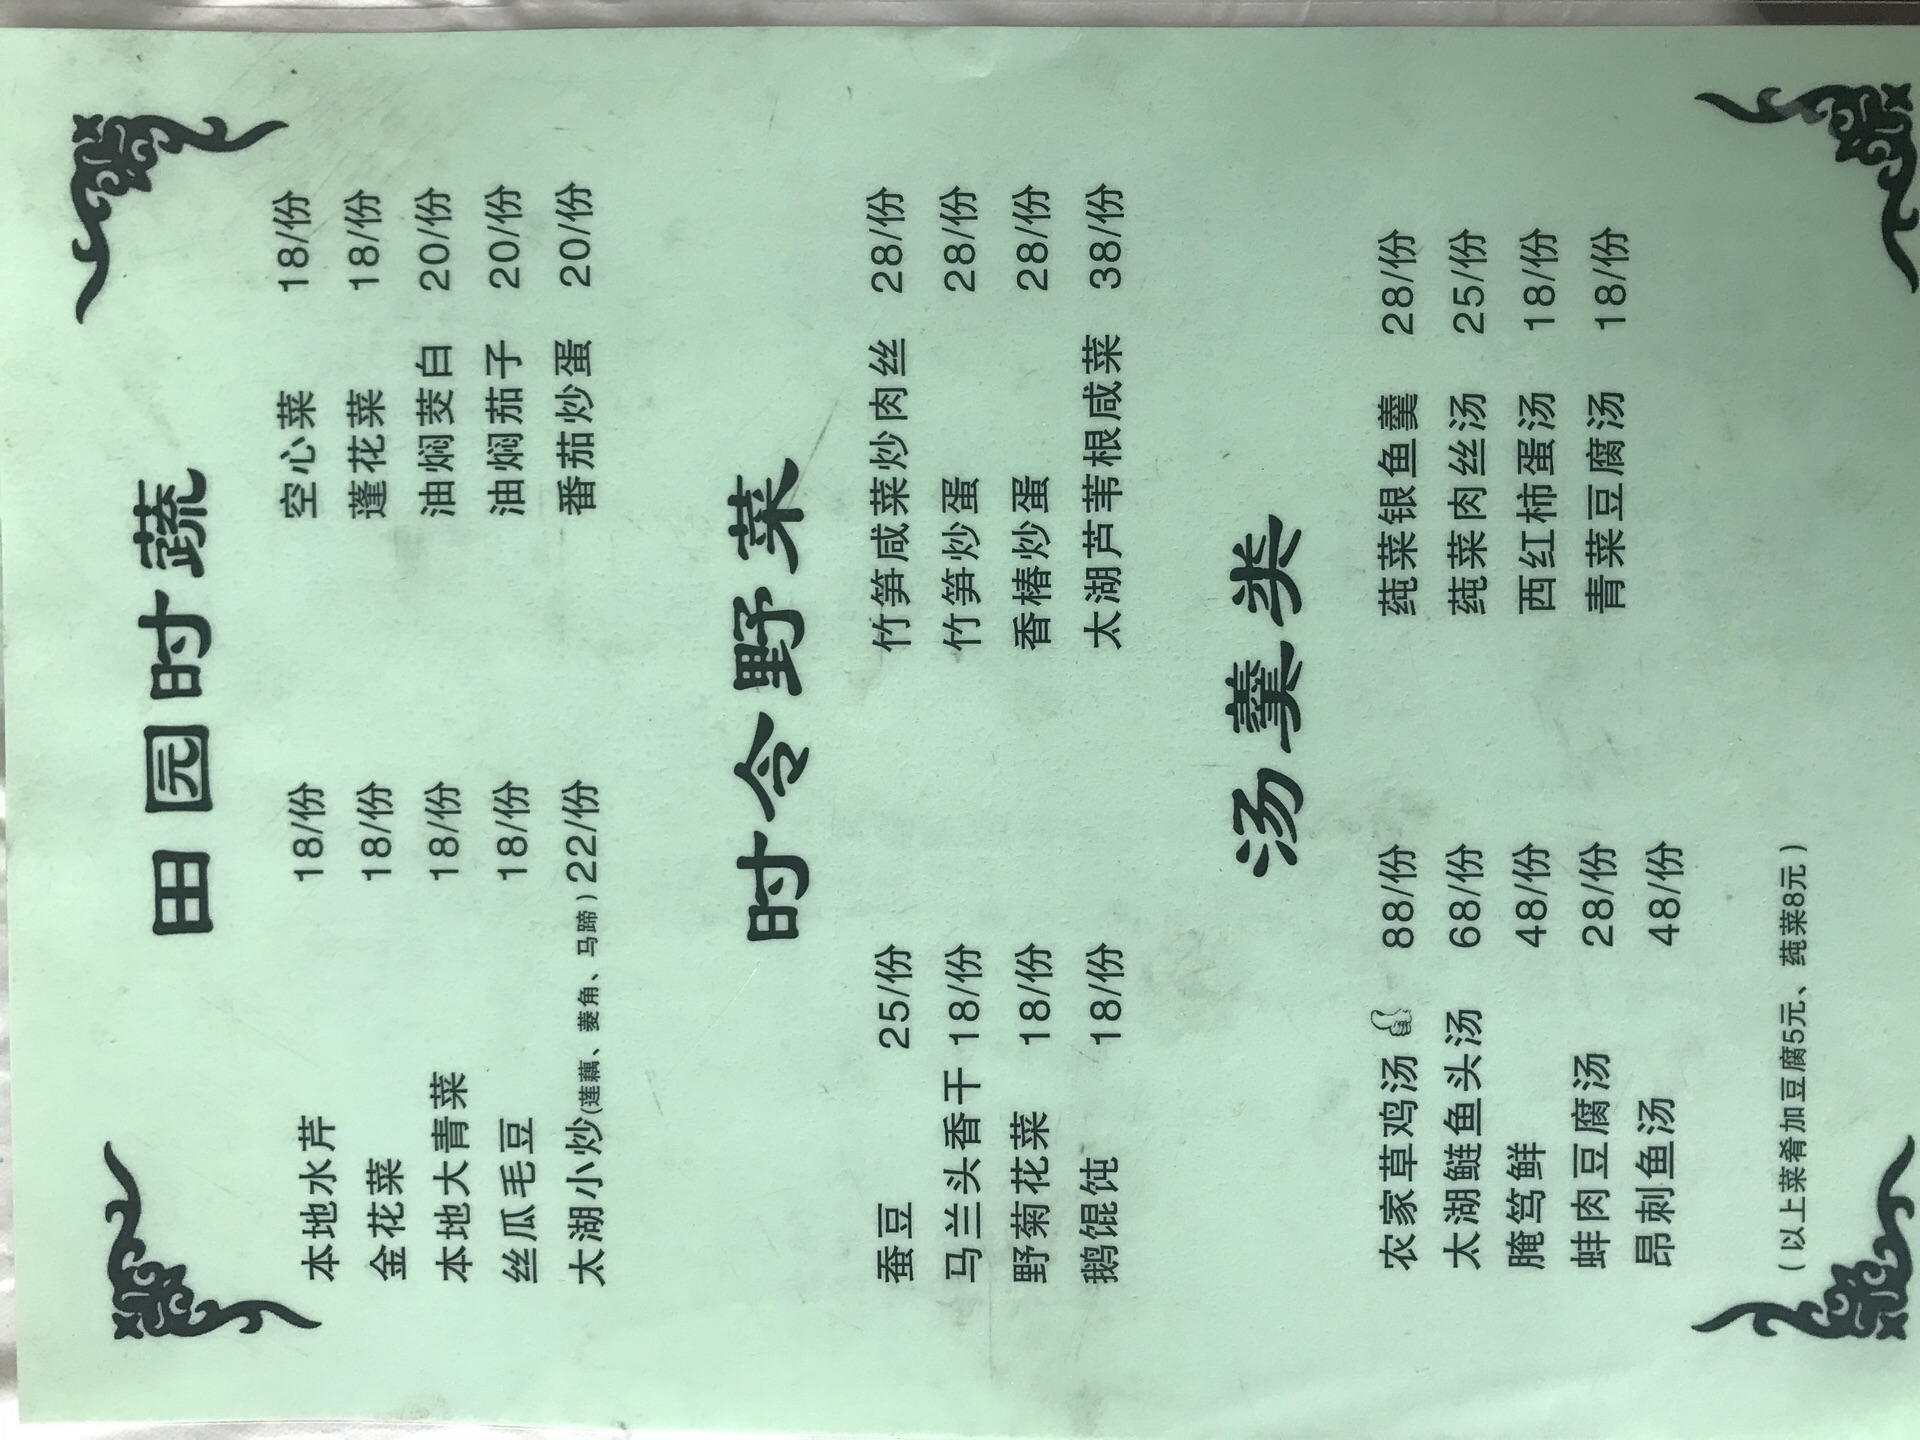 田园时蔬
本地水芹 18/份 空心菜 18/份
金花菜 18/份 蓬花菜 18/份
本地大青菜 18/份 油焖茭白 20/份
丝瓜毛豆 18/份 油焖茄子 20/份
太湖小炒(莲藕、菱角、马蹄)22/份 番茄炒蛋 20/份
时令野菜
蚕豆 25/份 竹笋咸菜炒肉丝 28/份
马兰头香干 18/份 竹笋炒蛋 28/份
野菊花菜 18/份 香椿炒蛋 28/份
鹅馄饨 18/份 太湖芦苇根咸菜 38/份
汤羹类
农家草鸡汤 88/份 莼菜银鱼羹 28/份
太湖鲢鱼头汤 68/份 莼菜肉丝汤 25/份
腌笃鲜 48/份 西红柿蛋汤 18/份
蚌肉豆腐汤 28/份 青菜豆腐汤 18/份
昂刺鱼汤 48/份
(以上菜肴加豆腐5元、莼菜8元)